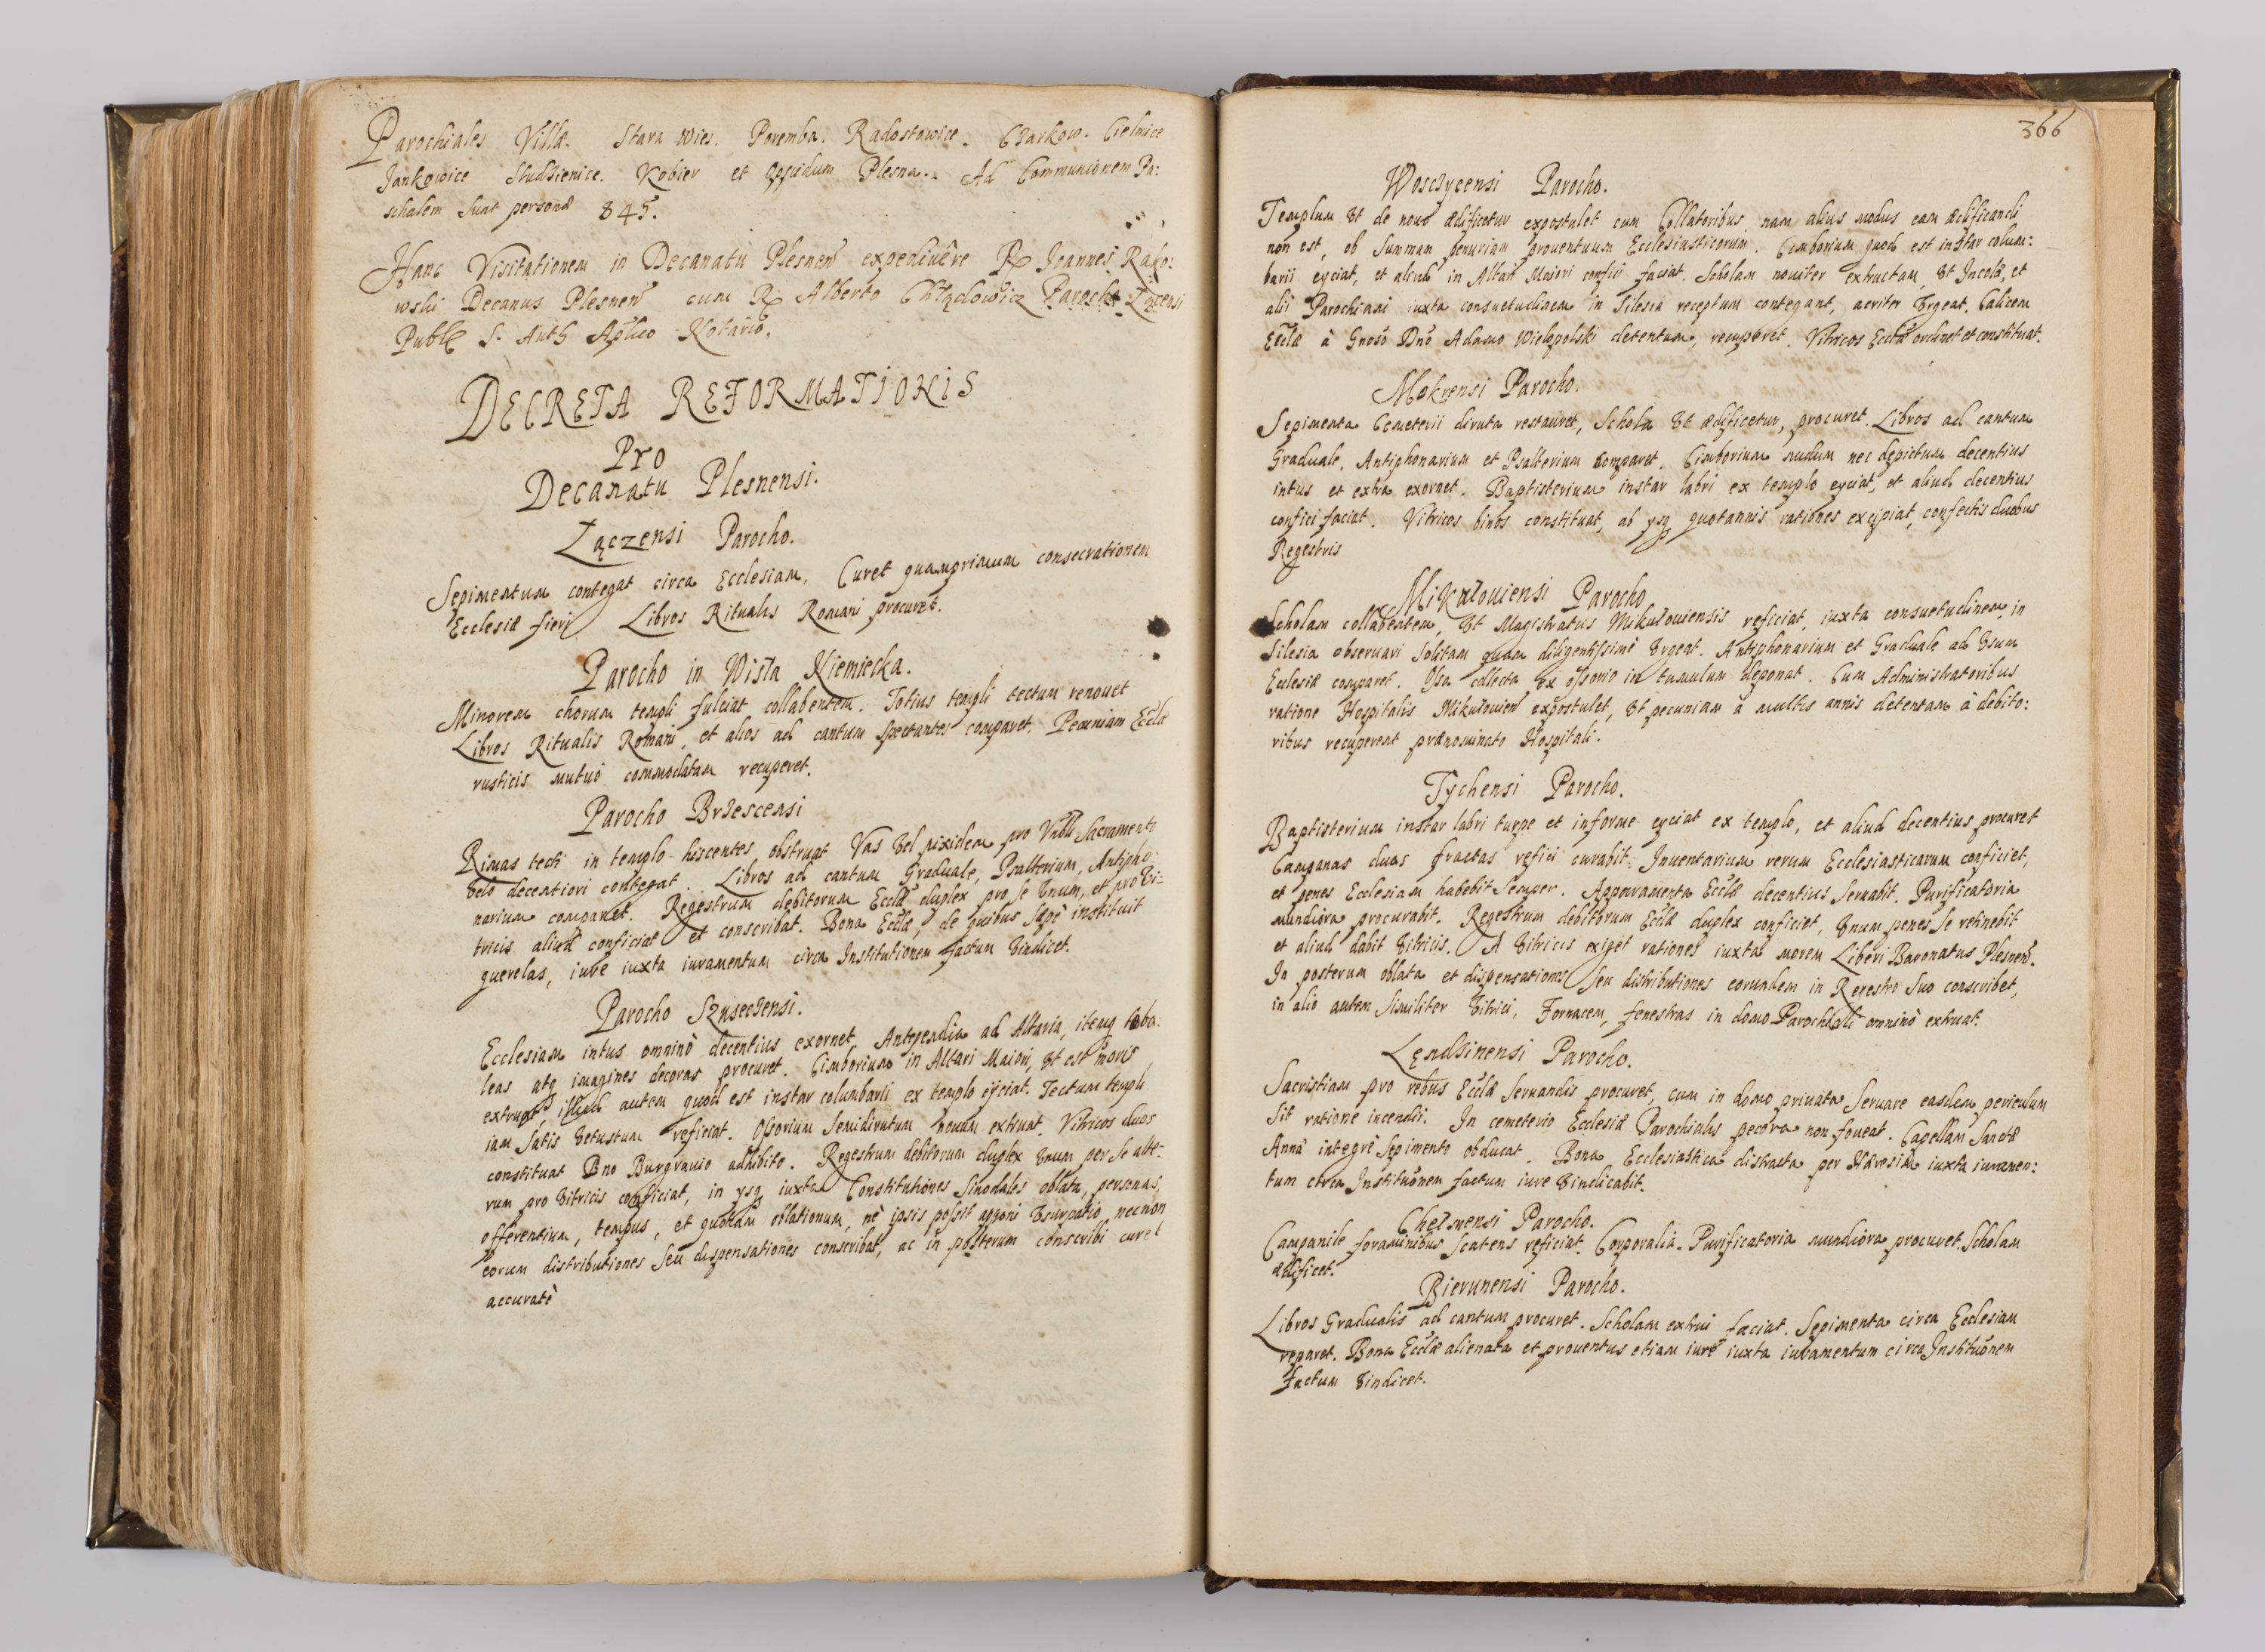 Parochiales Villæ. Stara Wies. Poremba. Radostowice. Czarkow. Cielmice
Jankowice Studzienice. Kobier et Opidum Plesna. Ad Communionem Pa:
schalem sunt personæ 845.
Hanc Visitationem in Decanatu Plesnen expediuêre R Joannes Rako:
wski Decanus Plesnen cum R Alberto Chlądowicz Parocho Łącensi
Publ S. Auth Aplico Notario.
DECRETA REFORMATIONIS
Pro
Decanatu Plesnensi.
Łączensi Parocho.
Sepimentum contegat circa Ecclesiam. Curet quamprimum consecrationem
Ecclesiæ fieri Libros Ritualis Romani procuret.
Parocho in Wisła Niemiecka.
Minorem chorum templi fulciat collabentem. Totius templi tectum renouet
Libros Ritualis Romani, et alios ad cantum spectantes comparet. Pecuniam Ecclæ
rusticis mutuò commodatam recuperet.
Parocho Brzescensi
Rimas tecti in templo hiscentes obstruat Vas vel pixidem pro Vnbli Sacramento
velo decentiori contegat. Libros ad cantum Graduale, Psalterium, Antipho:
narium comparet. Regestrum debitorum Ecclæ duplex pro se vnum, et pro vi:
tricis aliud conficiat et conscribat. Bona Ecclæ, de quibus sæpè instituit
querelas, iure iuxta iuramentum circa Institutionem factum vindicet.
Parocho Sznseczensi.
Ecclesiam intus omninò decentius exornet, Antependia ad Altaria, itemq toba:
leas atq imagines decoras procuret. Cimborium in Altari Maiori, vt est moris
extruat, illud autem quod est instar columbarii ex templo eijciat. Tectum templi
iam satis vetustum reficiat. Ossorium semidirutum nouum extruat. Vitricos duos
constituat Dno Burgrauio adhibito. Regestrum debitorum duplex vnum per se alte:
rum pro vitricis conficiat, in ysq iuxta Constitutiones Sinodales oblata, personas
offerentium, tempus, et quotam oblationum, nè ipsis possit apponi vsurpatio, necnon
eorum distributiones seu dispensationes conscribat, ac in posterum conscribi curet
accuratè
366
Woszczycensi Parocho.
Templum vt de nouo ædificetur expostulet cum Collatoribus nam alius modus eam ædificandi
non est, ob summam penuriam prouentuum Ecclesiasticorum. Cimborium quod est instar colum:
barii eyciat, et aliud in Altari Maiori confici faciat. Scholam nouiter extructam, vt Incolæ et
alii Parochiani iuxta consuetudinem in Silesia receptum contegant, acriter vrgeat. Calicem
Ecclæ à Gnoso Dno Adamo Wielopolski detentum, recuperet. Vitricos Ecclæ ordinet et constituat.
Mokrensi Parocho.
Sepimenta Cemeterii diruta restauret, Schola vt ædificetur, procuret. Libros ad cantum
Graduale, Antiphonarium et Psalterium comparet. Cimborium nudum nec depictum decentius
intus et extra exornet. Baptisterium instar labri ex templo eyciat, et aliud decentius
confici faciat. Vitricos binos constituat, ab ysq quotannis rationes excipiat, confectis duobus
Regestris
Mikułouiensi Parocho
Scholam collabentem, vt Magistratus Mikułouiensis reficiat, iuxta consuetudinem in
Silesia obseruari solitam quam diligentissimè vrgeat. Antiphonarium et Graduale ad vsum
Ecclesiæ comparet. Ossa collecta ex ossorio in tumulum deponat. Cum Administratoribus
ratione Hospitalis Mikułouien expostulet, vt pecuniam à multis annis detentam à debito:
ribus recuperent prænominato Hospitali.
Tychensi Parocho.
Baptisterium instar labri turpe et informe eyciat ex templo, et aliud decentius procuret
Campanas duas fractas refici curabit. Inuentarium rerum Ecclesiasticarum conficiet,
et penes Ecclesiam habebit semper. Apparamenta Ecclæ decentius seruabit. Purificatoria
mundiora procurabit. Regestrum debitorum Ecclæ duplex conficiet, vnum penes se retinebit
et aliud dabit vitricis. A vitricis exiget rationes iuxta morem Liberi Baronatus Plesnen.
In posterum oblata et dispensationes seu distributiones eorundem in Regestro suo conscribet,
in alio autem similiter vitrici, Fornacem, fenestras in domo Parochiali omninò extruat.
Lędzinensi Parocho.
Sacristiam pro rebus Ecclæ seruandis procuret, cum in domo priuata seruare easdem periculum
sit ratione incendii. In cemeterio Ecclesiæ Parochialis pecora non foueat. Capellam Sanctæ
Annæ integrè sepimento obducat. Bona Ecclesiastica distracta per Hæresim iuxta iuramen:
tum circa Institutionem factum iure vindicabit.
Chełmensi Parocho.
Campanile foraminibus scatens reficiat. Corporalia. Purificatoria mundiora procuret. Scholam
ædificet.
Bierunensi Parocho.
Libros Gradualis ad cantum procuret. Scholam extrui faciat. Sepimenta circa Ecclesiam
reparet. Bona Ecclæ alienata et prouentus etiam iure iuxta iuramentum circa Institutionem
factum vindicet.